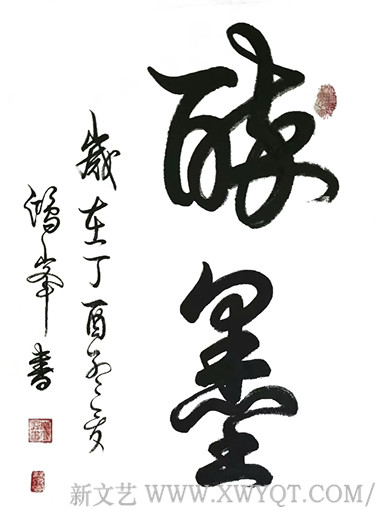 醉墨
歲在丁酉
鴻峯書
新文艺 WWW.XWYQT.COM/